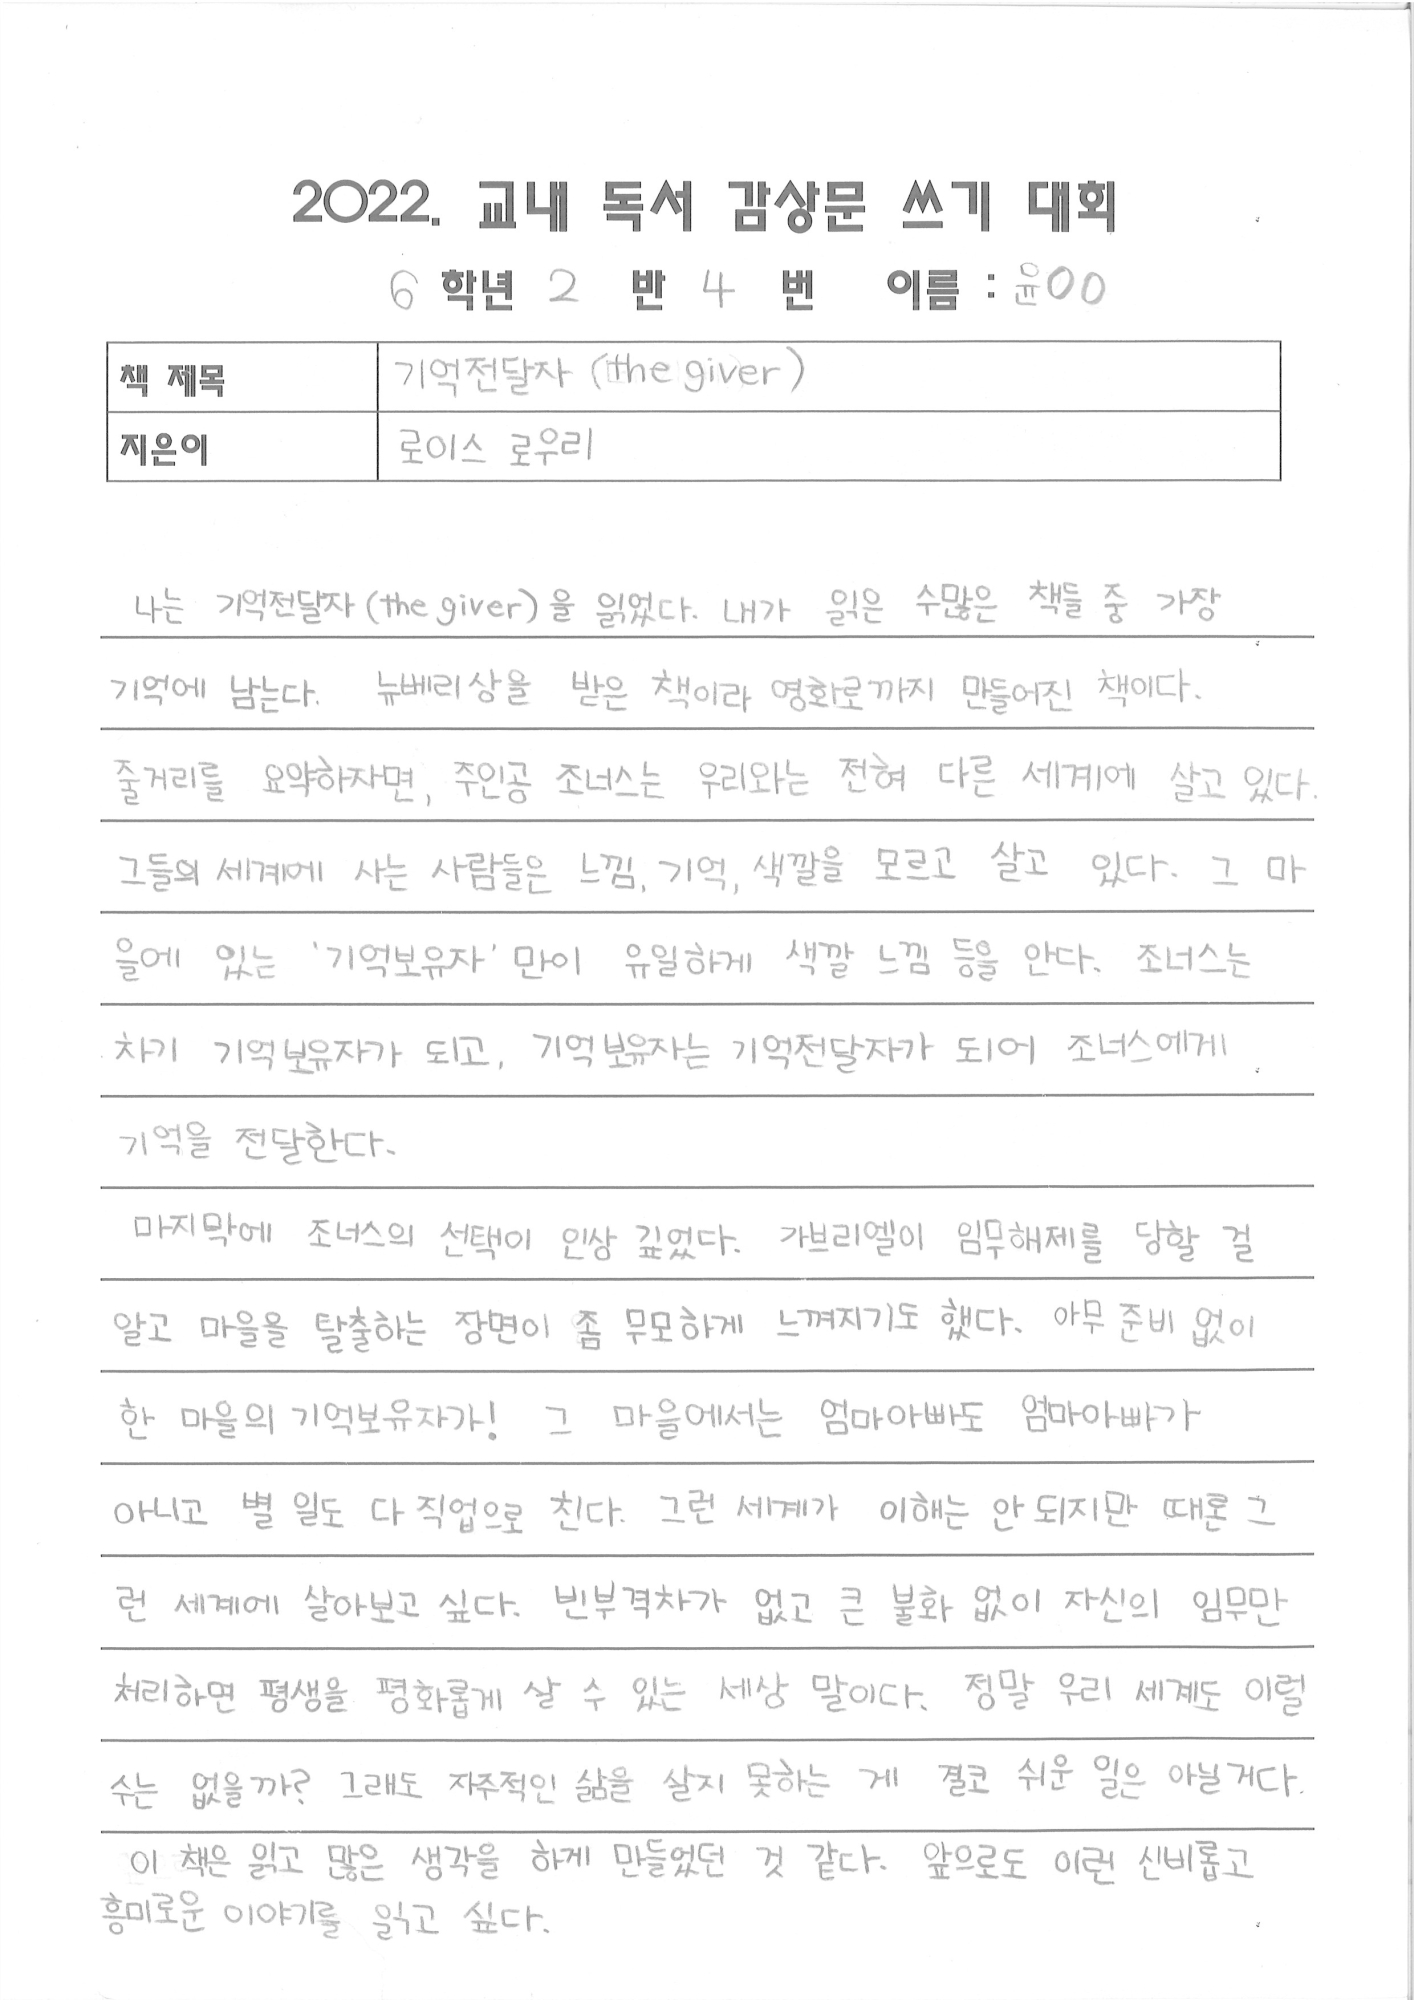 2022. 교내 독서 감상문 쓰기 대회
6 학년 2 반 4 번 이름 : 윤OO
책 제목 기억전달자 (the giver)
지은이 로이스 로우리
나는 기억전달자(the giver)을 읽었다. 내가 읽은 수많은 책들 중 가장
기억에 남는다. 뉴베리상을 받은 책이라 영화로까지 만들어진 책이다.
줄거리를 요약하자면, 주인공 조너스는 우리와는 전혀 다른 세계에 살고 있다.
그들의 세계에 사는 사람들은 느낌, 기억, 색깔을 모르고 살고 있다. 그 마
을에 있는 '기억보유자'만이 유일하게 색깔 느낌 등을 안다. 조너스는
차기 기억보유자가 되고, 기억보유자는 기억전달자가 되어 조너스에게
기억을 전달한다.
마지막에 조너스의 선택이 인상 깊었다. 가브리엘이 임무해제를 당할 걸
알고 마을을 탈출하는 장면이 좀 무모하게 느껴지기도 했다. 아무 준비 없이
한 마을의 기억보유자가! 그 마을에서는 엄마아빠도 엄마아빠가
아니고 별 일도 다 직업으로 친다. 그런 세계가 이해는 안 되지만 때론 그
런 세계에 살아보고 싶다. 빈부격차가 없고 큰 불화 없이 자신의 임무만
처리하면 평생을 평화롭게 살 수 있는 세상 말이다. 정말 우리 세계도 이럴
수는 없을까? 그래도 자주적인 삶을 살지 못하는 게 결코 쉬운 일은 아닐거다.
이 책은 읽고 많은 생각을 하게 만들었던 것 같다. 앞으로도 이런 신비롭고
흥미로운 이야기를 읽고 싶다.